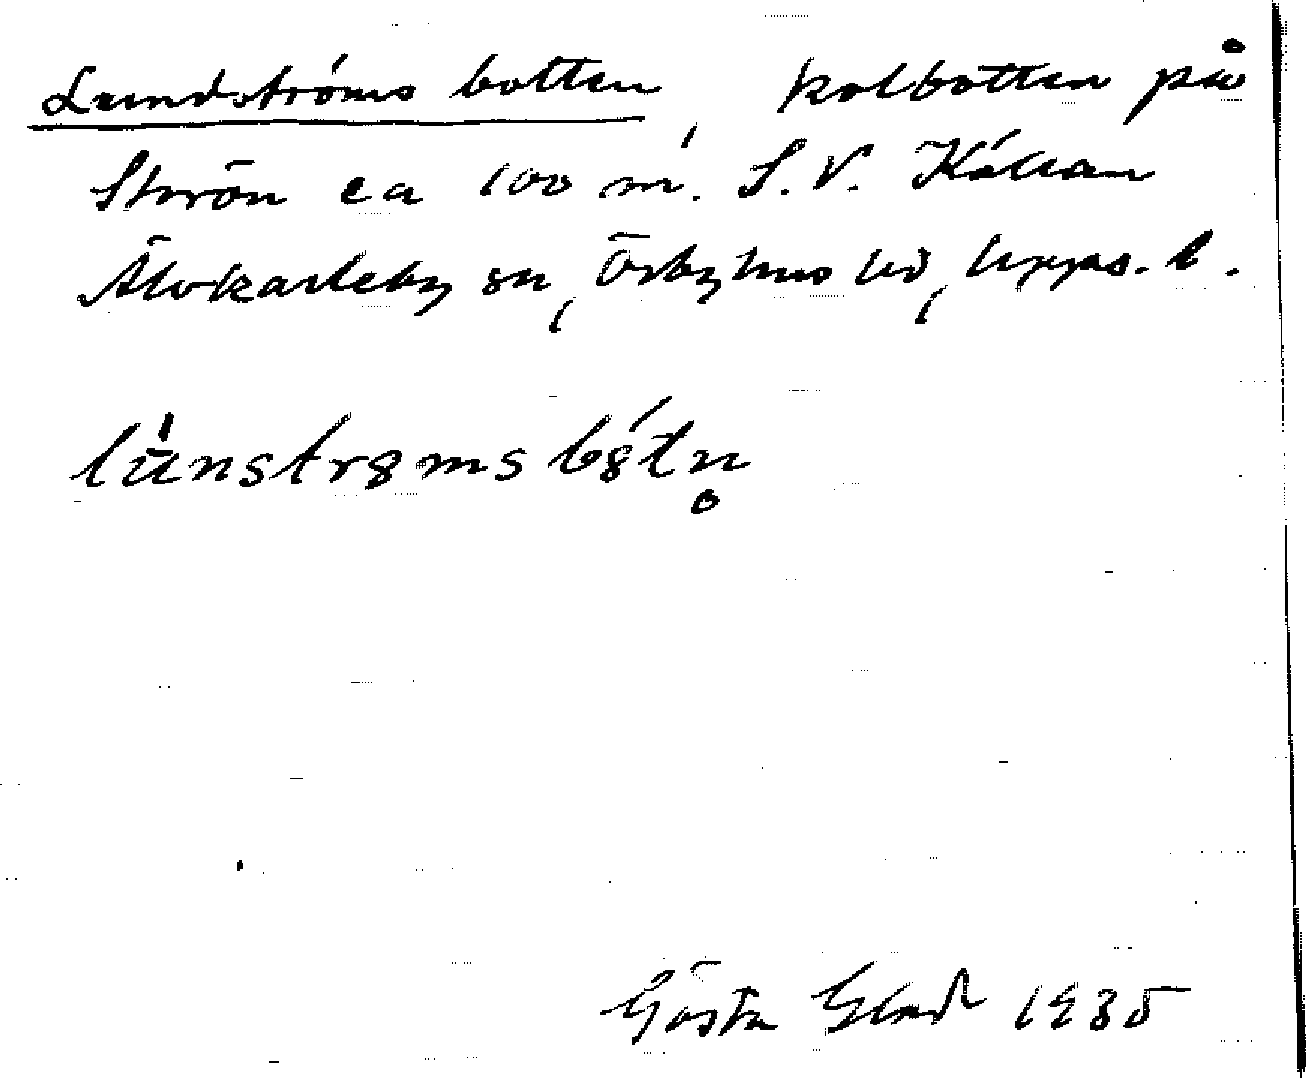 Lundströms botten, kolbotten på
Storön ca 100 m. S.V. Källan
Älvkarleby sn, Örbyhus hd, Upps. l.
lùnstrømsbǿtn̥
Gösta Glad 1935